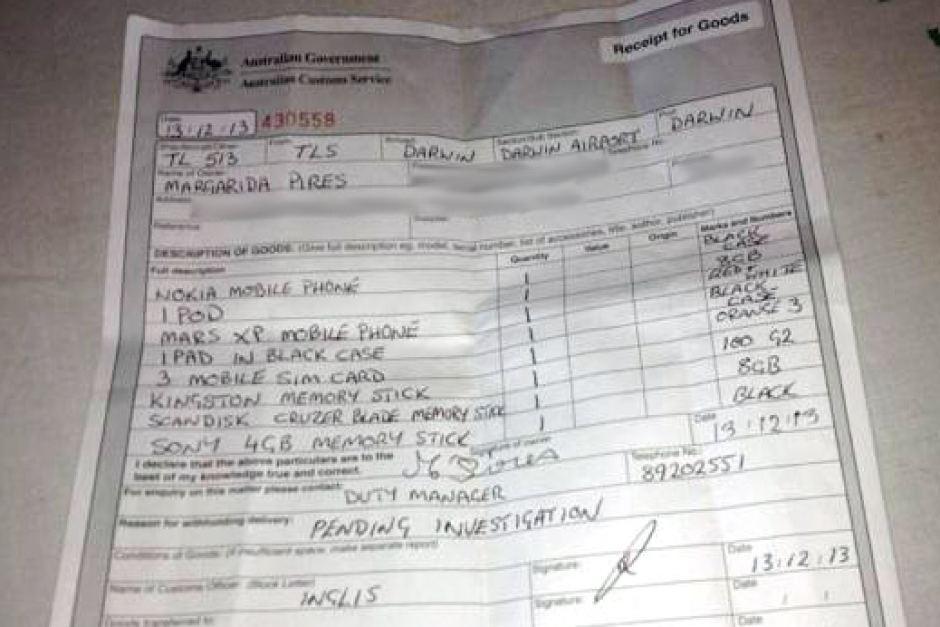 Receipt for Goods
Australian Government
Australian Customs Service
Date
13.12.13 430558
TL 513 TLS DARWIN DARWIN AIRPORT DARWIN
Telephone No.
Name of Owner
MARGARIDA PIRES
Address
Reference
DESCRIPTION OF GOODS: (Give full description eg. model, serial number, list of accessories, title, author, publisher)
Full description Quantity Value Origin Marks and Numbers
NOKIA MOBILE PHONE 1 BLACK CASE
I POD 1 8GB RED + WHITE
MARS XP MOBILE PHONE 1 BLACK CASE
I PAD IN BLACK CASE 1 ORANGE 3
3 MOBILE SIM CARD 1
KINGSTON MEMORY STICK 1 100 G2
SCANDISK CRUZER BLADE MEMORY STICK 1 8GB
SONY 4GB MEMORY STICK 1 BLACK
I declare that the above particulars are to the
best of my knowledge true and correct.
Signature of owner
Date
13.12.13
For enquiry on this matter please contact:
DUTY MANAGER
Telephone No.
89202551
Reason for withholding delivery:
PENDING INVESTIGATION
Conditions of Goods: (if insufficient space, make separate report)
Name of Customs Officer (Block Letter)
INGLIS
Signature:
Date
13.12.13
Signature:
Date
Goods transferred to
Date